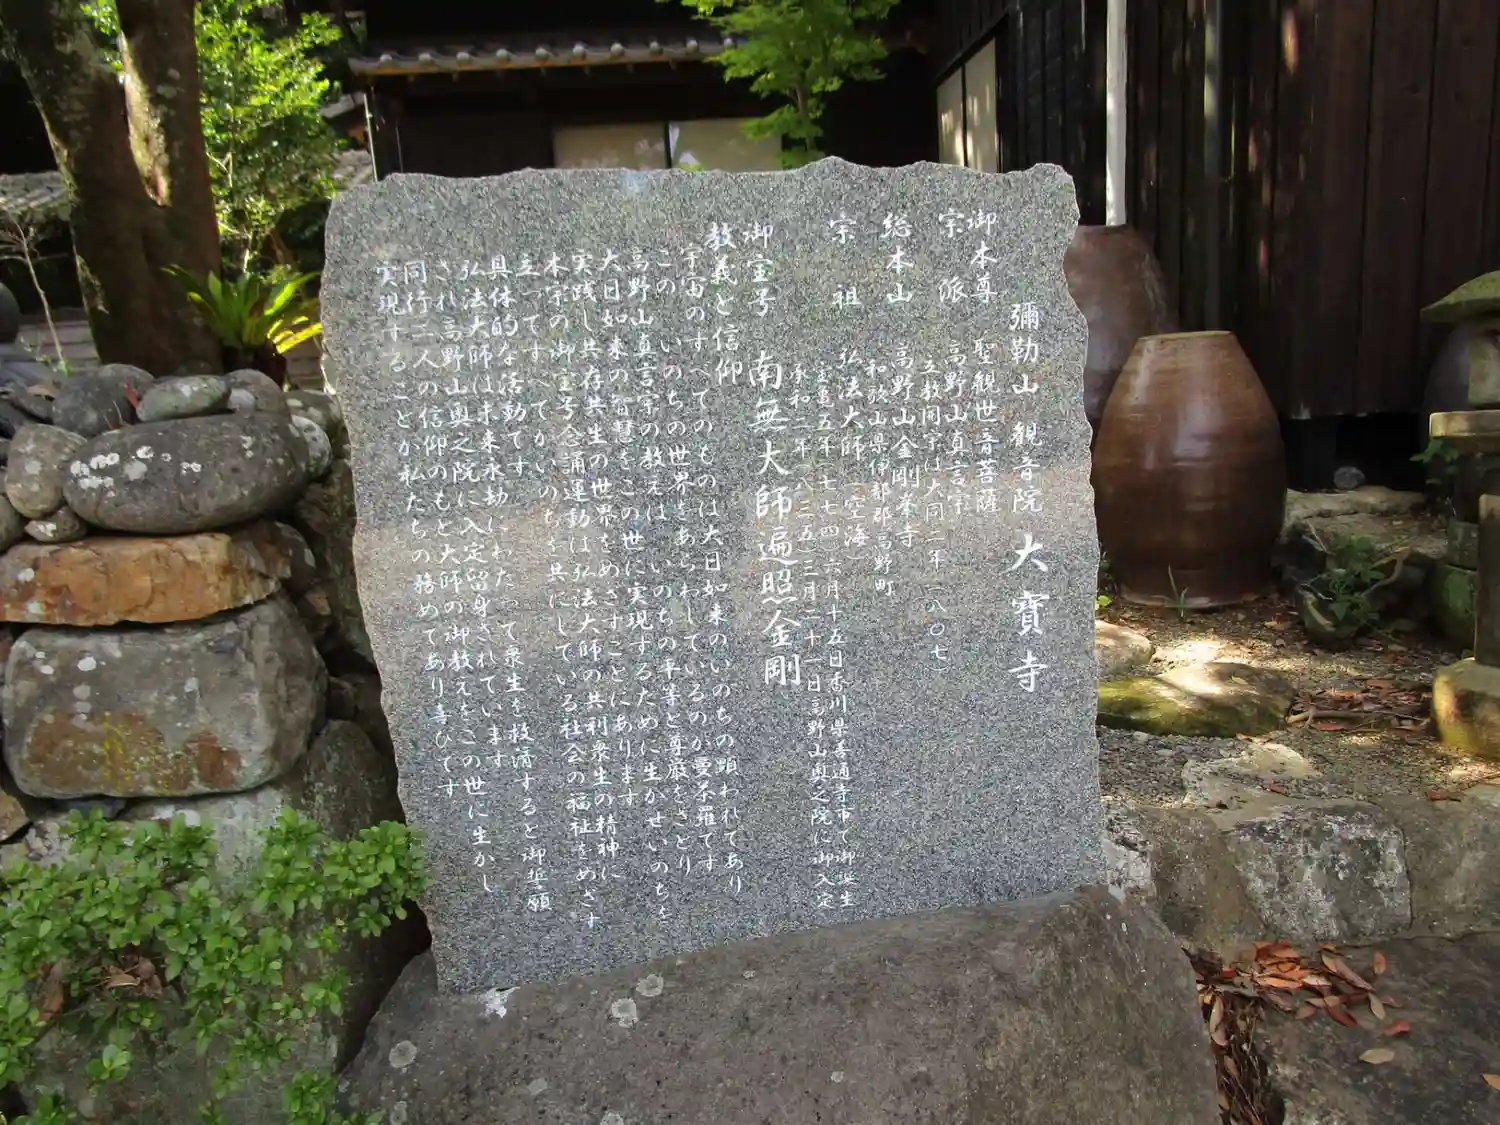 彌勒山 観音院 大寳寺
御本尊 聖観世音菩薩
宗派 高野山真言宗
立教開宗は大同二年(八〇七)
総本山 高野山金剛峯寺
和歌山県伊都郡高野町
宗祖 弘法大師(空海)
宝亀五年(七七四)六月十五日香川県善通寺市で御誕生
承和二年(八三五)三月二十一日高野山奥之院に御入定
御宝号 南無大師遍照金剛
教義と信仰
宇宙のすべてのものは大日如来のいのちの顕われであり
このいのちの世界をあらわしているのが曼荼羅です
高野山真言宗の教えは、いのちの平等と尊厳をさとり
大日如来の智慧をこの世に実現するために生かせいのちを
実践し共存共生の世界をめざすことにあります
本宗の御宝号念誦運動は弘法大師の共利衆生の精神に
立ってすべてがいのちを共にしている社会の福祉をめざす
具体的な活動です
弘法大師は未来永劫にわたって衆生を救済すると御誓願
され高野山奥之院に入定留身されています
同行二人の信仰のもと大師の御教えをこの世に生かし
実現することが私たちの務めであり喜びです